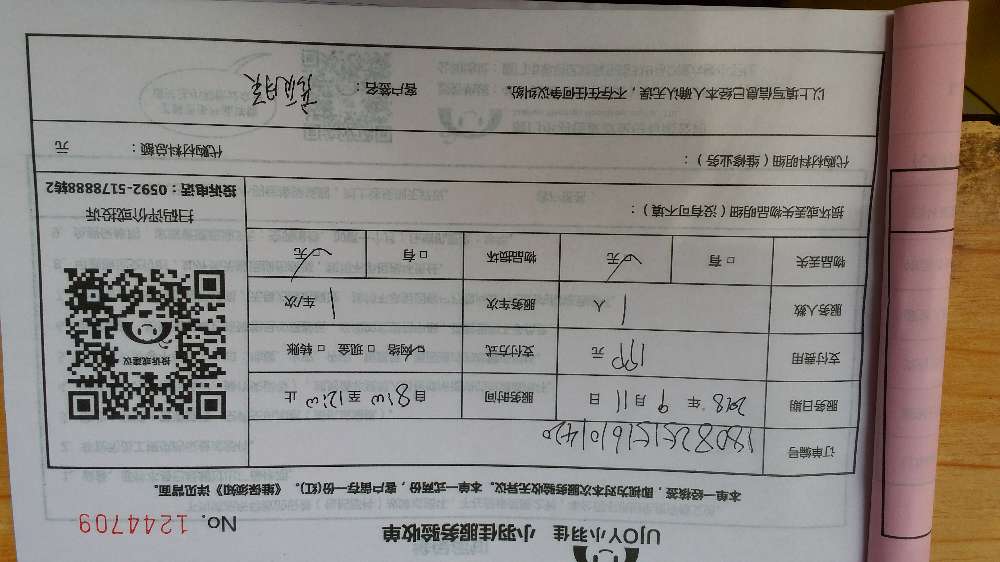 UJOY小羽佳 小羽佳服务验收单
No. 1244709
本单一经核签，即视为对本次服务验收无异议。本单一式两份，客户留存一份(红)。《维保须知》详见背面。
订单编号
服务日期 2018 年 9 月 11 日 服务时间 自 8:00 至 12:00 止
支付费用 199 元 支付方式 网络 □ 现金 □ 转账
服务人数 1 人 服务车次 1 车/次
物品丢失 □ 有 无 物品损坏 □ 有 无
损坏或丢失物品明细（没有可不填）：
投诉或建议
扫码评价或投诉
投诉电话：0592-5178888转2
代购材料明细（维修业务）： 代购材料总额： 元
以上填写信息已经本人确认无误，不存在任何争议纠纷。 客户签名：